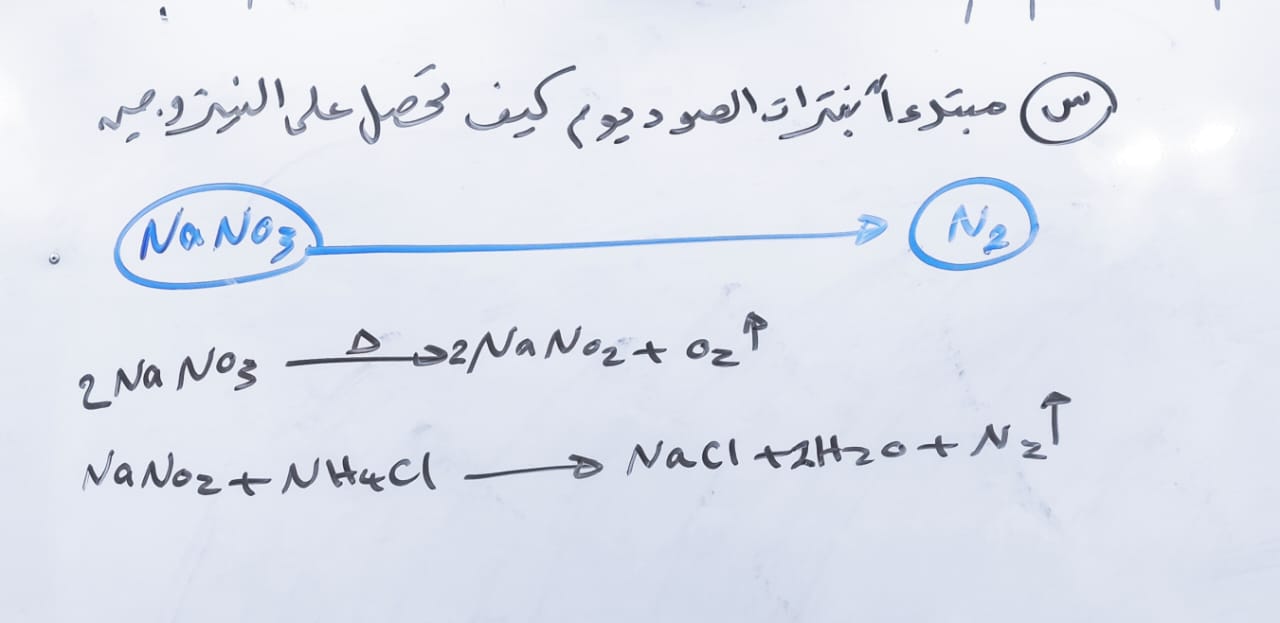 س مبتدءاً بنترات الصوديوم كيف تحصل على النيتروجين
NaNO3 → N2
2NaNO3 —Δ→ 2NaNO2 + O2↑
NaNO2 + NH4Cl → NaCl + 2H2O + N2↑